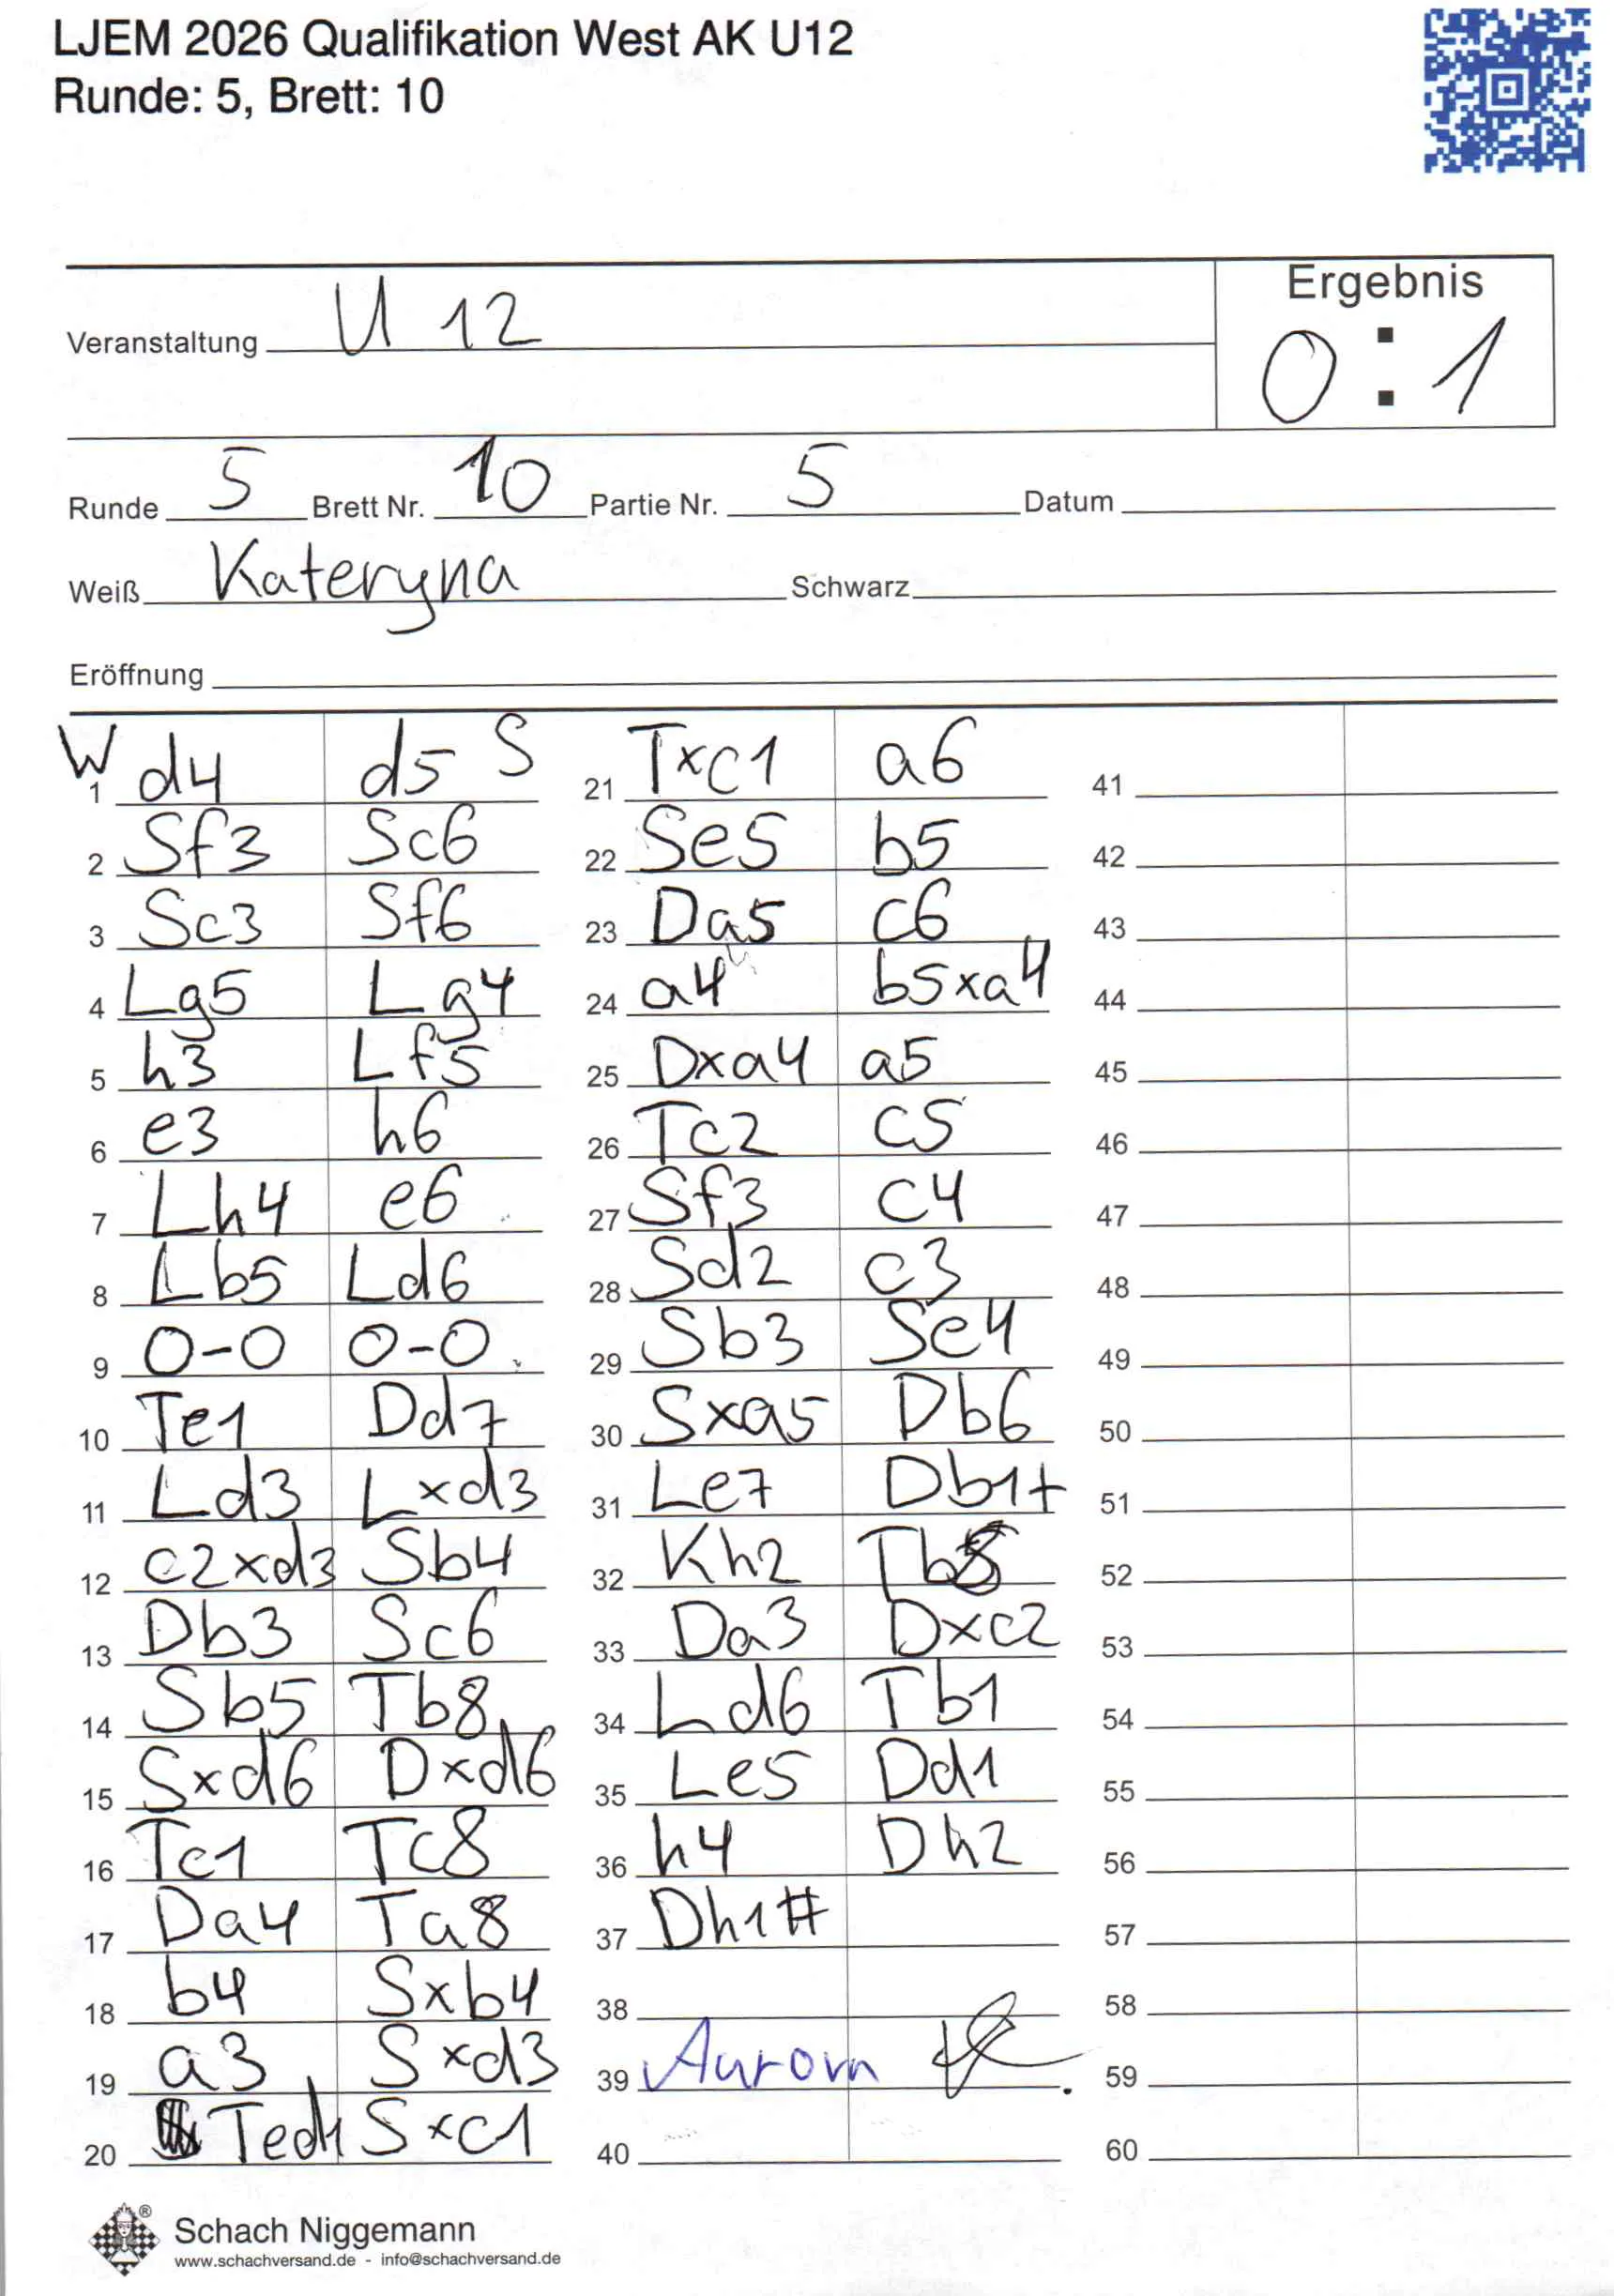 LJEM 2026 Qualifikation West AK U12
Runde: 5, Brett: 10
Veranstaltung U 12
Ergebnis
0 : 1
Runde 5 Brett Nr. 10 Partie Nr. 5 Datum
Weiß Kateryna Schwarz
Eröffnung
W S
1 d4 d5
2 Sf3 Sc6
3 Sc3 Sf6
4 Lg5 Lg4
5 h3 Lf5
6 e3 h6
7 Lh4 e6
8 Lb5 Ld6
9 0-0 0-0
10 Te1 Dd7
11 Ld3 Lxd3
12 c2xd3 Sb4
13 Db3 Sc6
14 Sb5 Tb8
15 Sxd6 Dxd6
16 Tc1 Tc8
17 Da4 Ta8
18 b4 Sxb4
19 a3 Sxd3
20 Ted1 Sxc1
21 Txc1 a6
22 Se5 b5
23 Da5 c6
24 a4 b5xa4
25 Dxa4 a5
26 Tc2 c5
27 Sf3 c4
28 Sd2 c3
29 Sb3 Se4
30 Sxa5 Db6
31 Le7 Db1+
32 Kh2
33 Da3 Dxc2
34 Ld6 Tb1
35 Le5 Dd1
36 h4 Dh2
37 Dh1#
38
39 Aurora
40
41
42
43
44
45
46
47
48
49
50
51
52
53
54
55
56
57
58
59
60
Schach Niggemann
www.schachversand.de - info@schachversand.de